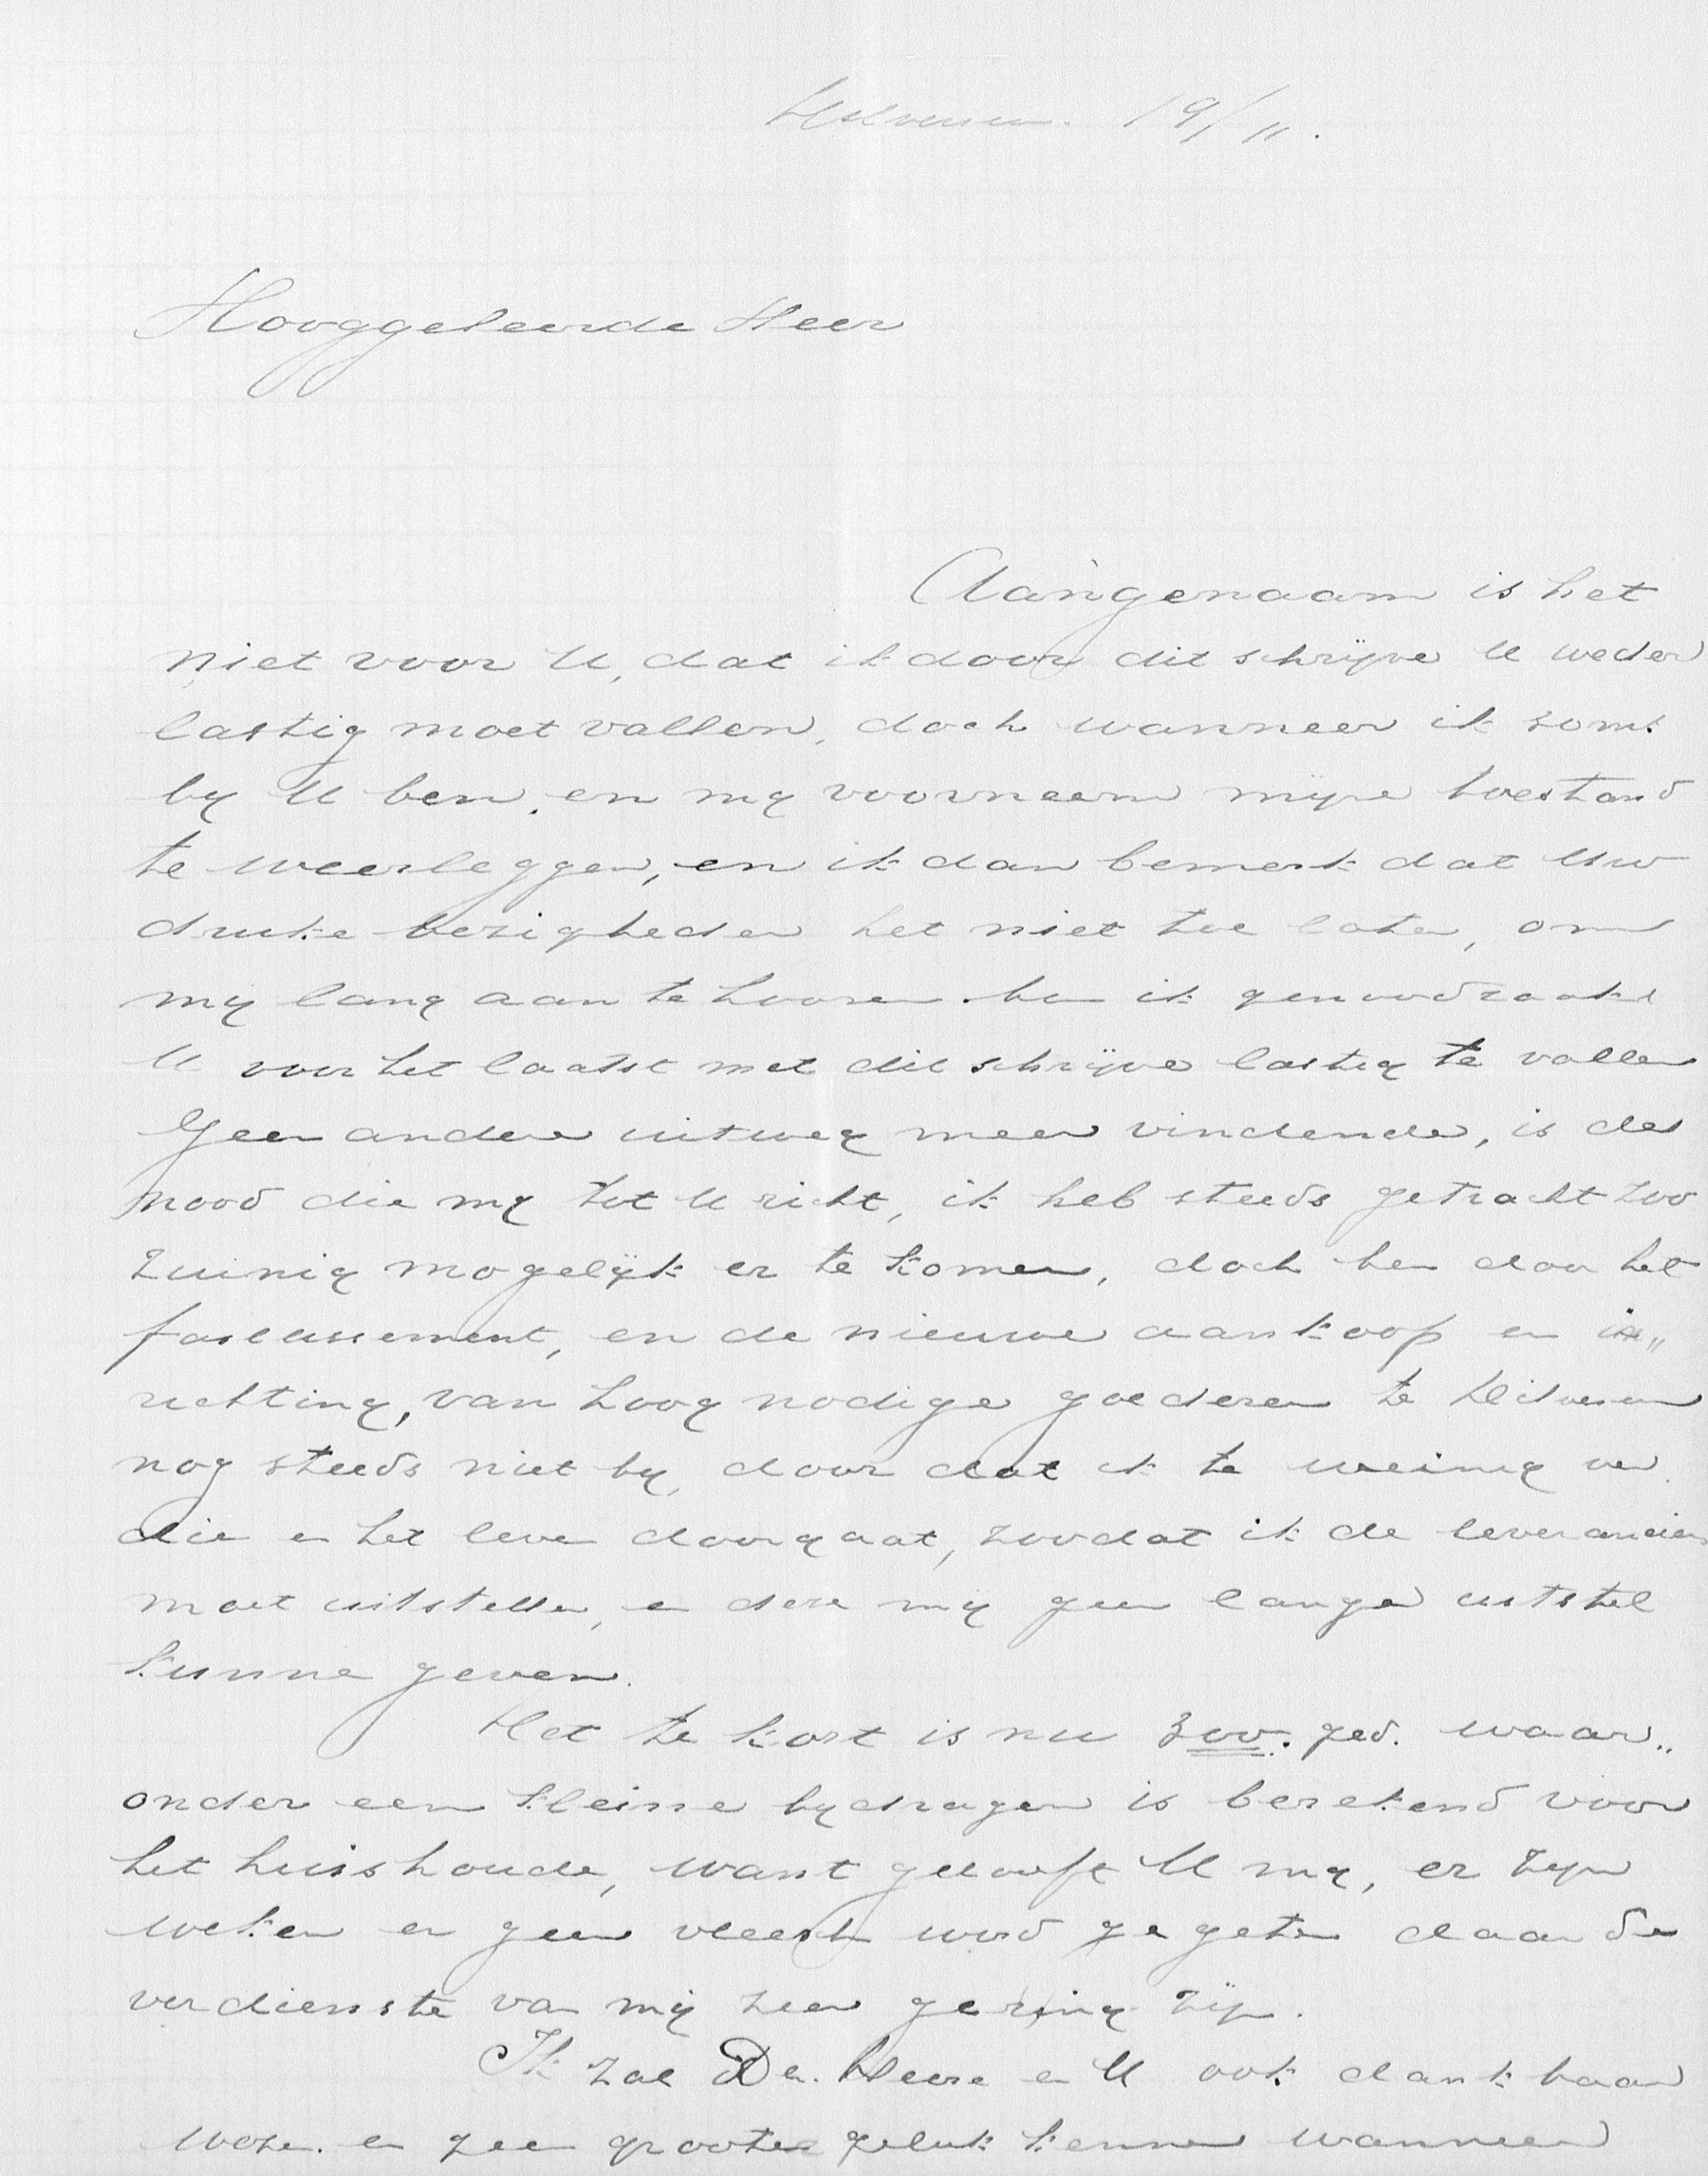 Hilversum. 19/11.
Hooggeleerde Heer
Aangenaam is het
niet voor U, dat ik door dit schrijve U weder
lastig moet vallen, doch wanneer ik soms
by U ben, en my voorneem mijne toestand
te weerleggen, en ik dan bemerk dat Uw
drukke bezigheden het niet toe laten, om
my lang aan te hooren. ben ik genoodzaakt
U voor het laatst met dit schrijve lastig te vallen
Geen andere uitweg meer vindende, is de
nood die my tot U richt, ik heb steeds getracht zoo
zuinig mogelijk er te komen, doch ben door het
faseliesement, en de nieuwe aankoop en in„
richting, van hoog nodige goederen te Hilversum
nog steeds niet by, door dat ik te weinig ver
die en het leven doorgaat, zoodat ik de leveranciers
moet uitstellen, en deze mij geen lange uitstel
kunne geven.
Het te kort is nu 300. gld. waar„
onder een kleine bydragen is berekend voor
het huishoude, want gelooft U my, er zijn
weken er geen vleesch word ge geten daar de
verdienste van mij zeer gering zijn.
Ik zal De. Heere en U ook dankbaar
weze. en geen grooter geluk kennen wanneer